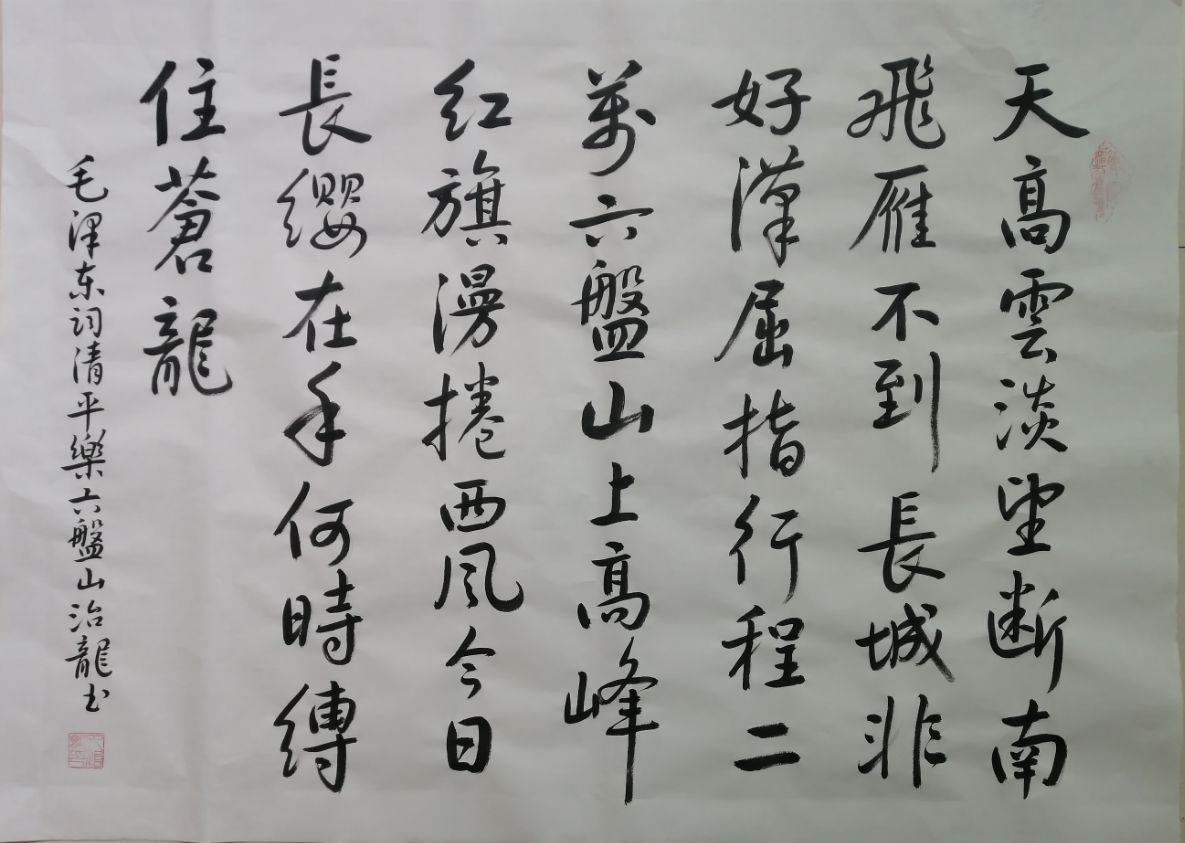 天高雲淡望断南
飛雁不到長城非
好漢屈指行程二
萬六盤山上高峰
红旗漫捲西风今日
長缨在手何時縛
住蒼龍
毛泽东词清平樂六盤山治龍书